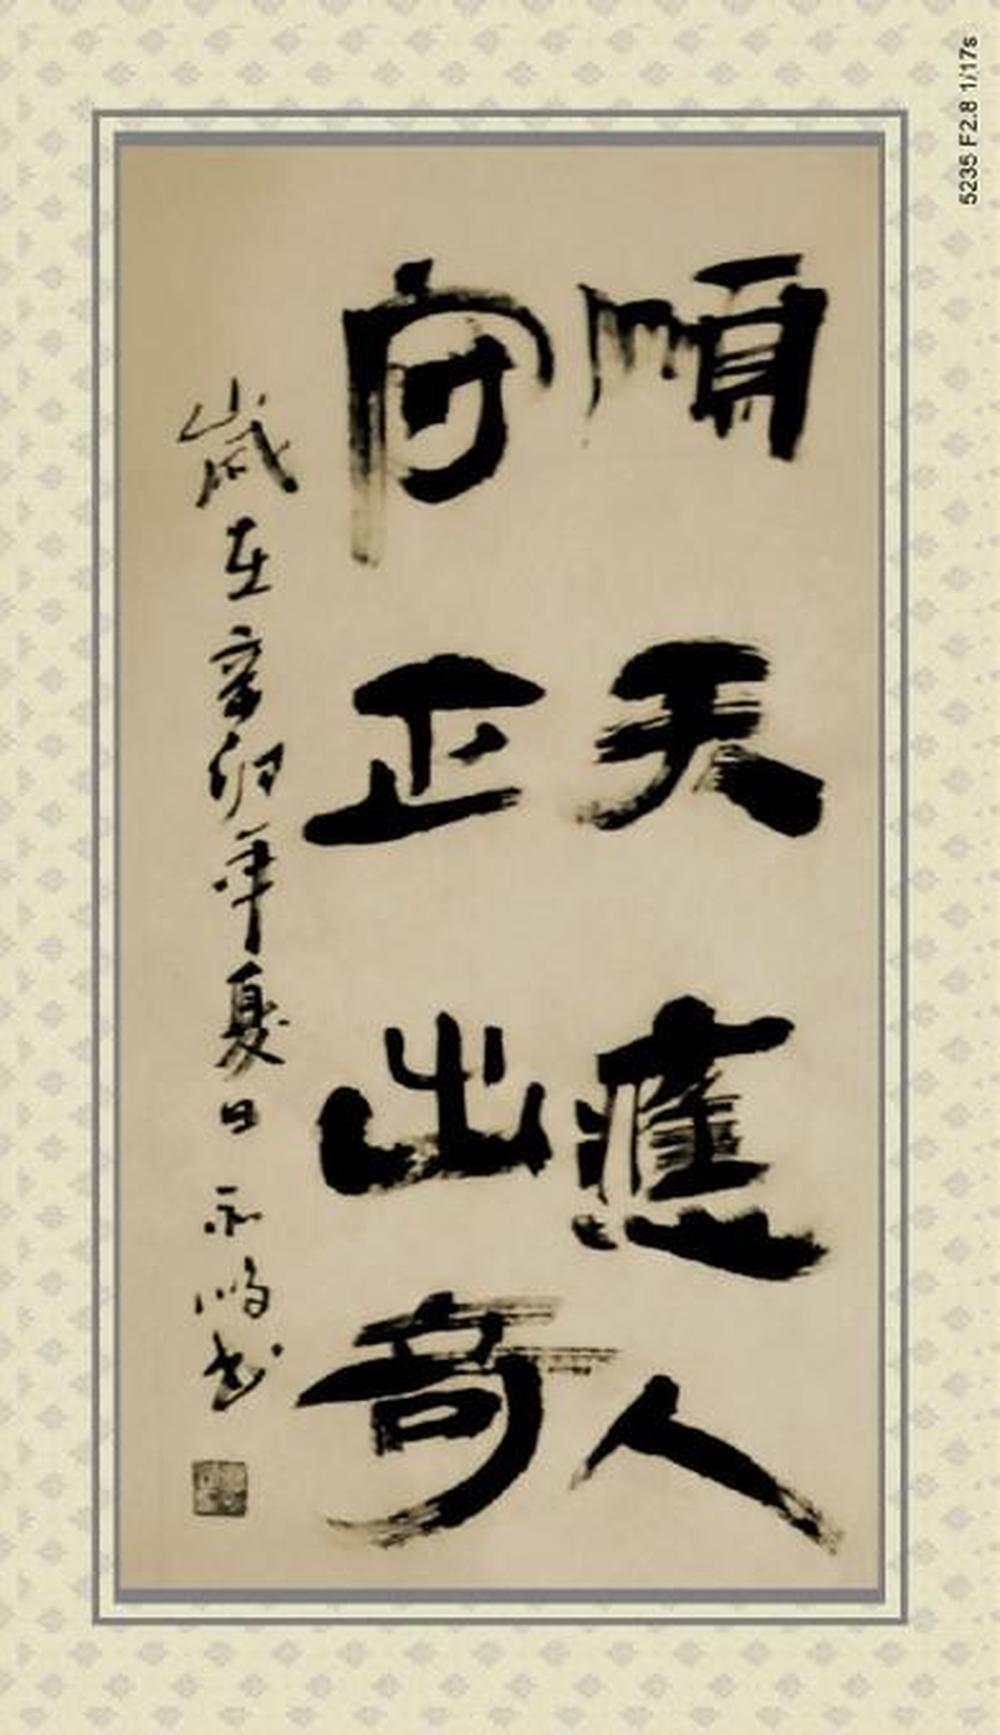 5235 F2.8 1/17s
順天應人
守正出奇
歲在辛卯年夏日永书